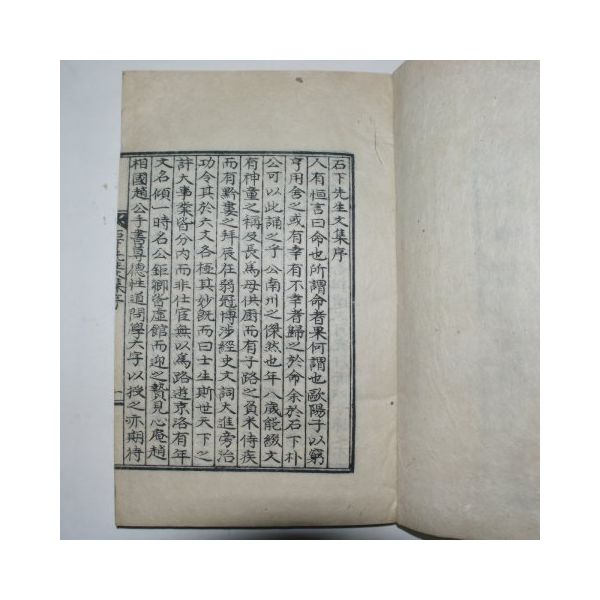 石下先生文集序
人有恒言曰命也所謂命者果何謂也歐陽子以窮
亨用舍之或有幸有不幸者歸之於命余於石下朴
公可以此誦之乎公南州之傑然也年八歲能綴文
有神童之稱及長爲母供廚而有子路之負米侍疾
而有黔婁之拜辰在弱冠博涉經史文詞大進旁治
功令其於六文各極其妙旣而曰士生斯世天下之
許大事業皆分內而非仕宦無以爲路遊京洛有年
文名傾一時名公鉅卿皆虛館而迎之贄見心庵趙
相國趙公手書尊德性道問學六字以授之亦期待